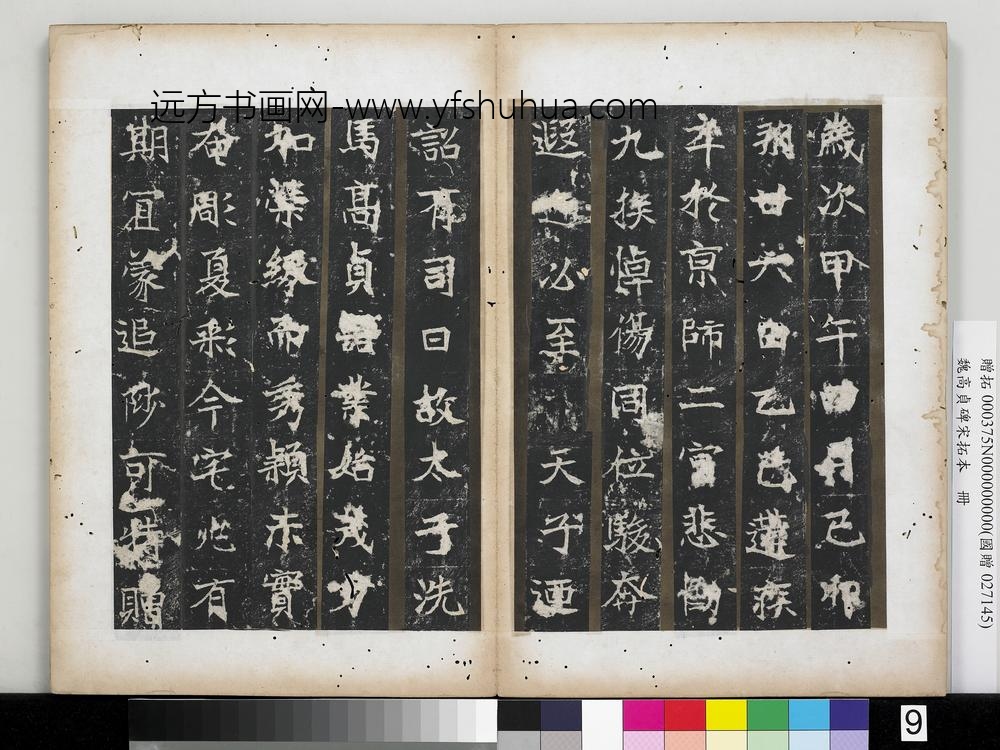 远方书画网-www.yfshuhua.com
歲次甲午四月己卯
朔廿六日乙巳遘疾
卒於京師二宫悲慟
九族悼傷同位駿奔
遐邇必至天子迺
詔有司曰故太子洗
馬髙貞器業始茂方
加榮級而秀穎未實
奄彫夏彩今宅兆有
期宜蒙追陟可特贈
贈拓 000375N000000000(國贈 027145)
魏高貞碑宋拓本 冊
9